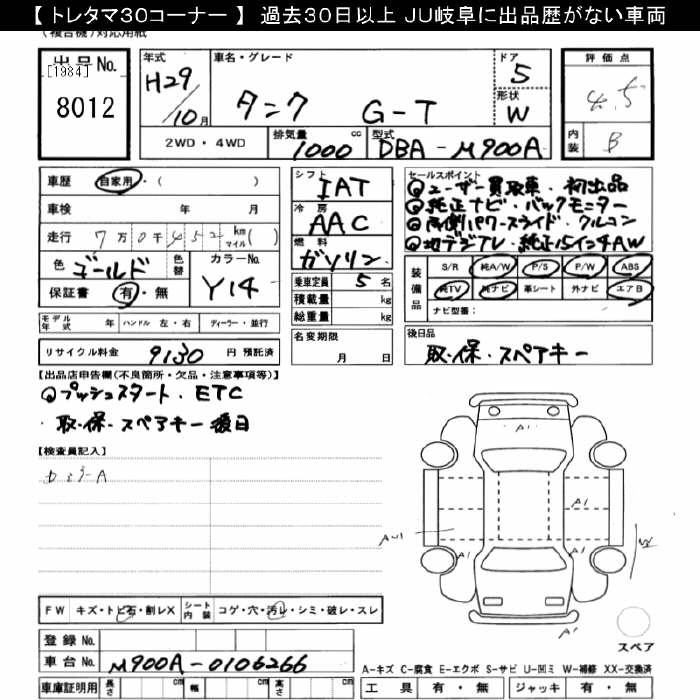 【 トレタマ30コーナー 】 過去30日以上 JU岐阜に出品歴がない車両
(複合機)対応用紙
出品No.
[1984]
8012
年式 H29/10月
車名・グレード タンク G-T
ドア 5
形状 W
評価点 4.5
内装 B
2WD・4WD
排気量 1000 cc
型式 DBA-M900A
車歴 自家用・( )
車検 年 月
走行 7万0千452 km マイル( )
色 ゴールド
色替
カラーNo. Y14
保証書 有・無
シフト IAT
冷房 AAC
燃料 ガソリン
乗車定員 5名
積載量 kg
総重量 kg
セールスポイント
ユーザー買取車・初出品
純正ナビ・バックモニター
両側パワースライド・クルコン
地デジTV・純正15インチAW
装備品
S/R 純A/W P/S P/W ABS
純TV 純ナビ 革シート 外ナビ エアB
ナビ型番:
モデル年式 年 ハンドル 左・右 ディーラー・並行
名変期限 月 日
後日品
取・保・スペアキー
リサイクル料金 9130 円 預託済
【出品店申告欄(不良箇所・欠品・注意事項等)】
プッシュスタート・ETC
取・保・スペアキー後日
【検査員記入】
A1
A1
A1
A1
A1
FW キズ・トビ石・割レX
シート内装 コゲ・穴・汚レ・シミ・破レ・スレ
スペア
登録No.
車台No. M900A-0106266
A-キズ C-腐食 E-エクボ S-サビ U-凹ミ W-補修 XX-交換済
車庫証明用 長さ cm 幅 cm 高さ cm
工具 有・無 ジャッキ 有・無